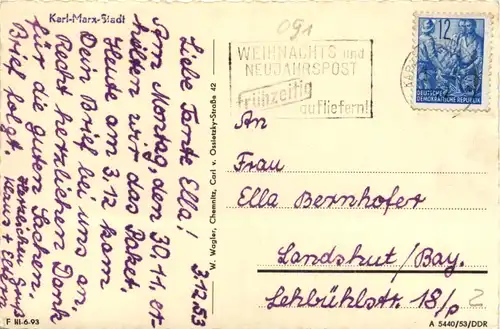 Karl-Marx-Stadt
3.12.53
Liebe Tante Ella!
Am Montag, den 30.11. er-
hielten wir das Paket.
Heute am 3.12 kam
Dein Brief bei uns an.
Recht herzlichen Dank
für die guten Sachen.
Brief folgt. Herzlichen Gruß
Klaus + Eltern
F III-6-93
W. Wagler, Chemnitz, Carl v. Ossietzky-Straße 42
091
WEIHNACHTS und
NEUJAHRSPOST
frühzeitig
aufliefern!
12
DEUTSCHE
DEMOKRATISCHE REPUBLIK
An
Frau
Ella Bernhofer
Landshut/Bay.
Lehbühlstr. 18/p
2
A 5440/53/DDR